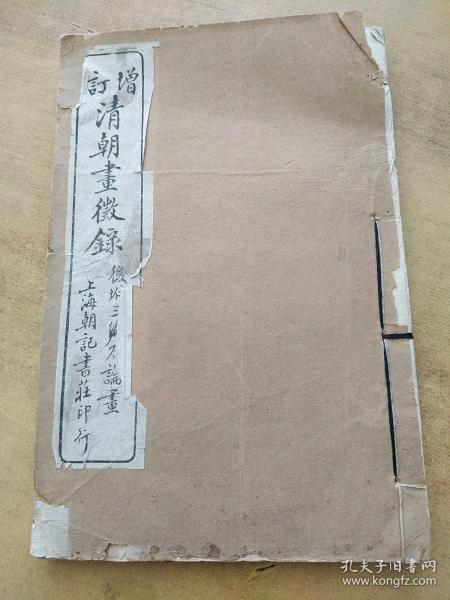 增訂
清朝畫徵錄
後坿三
論畫
上海朝記書莊印行
孔夫子旧书网
www.kongfz.com